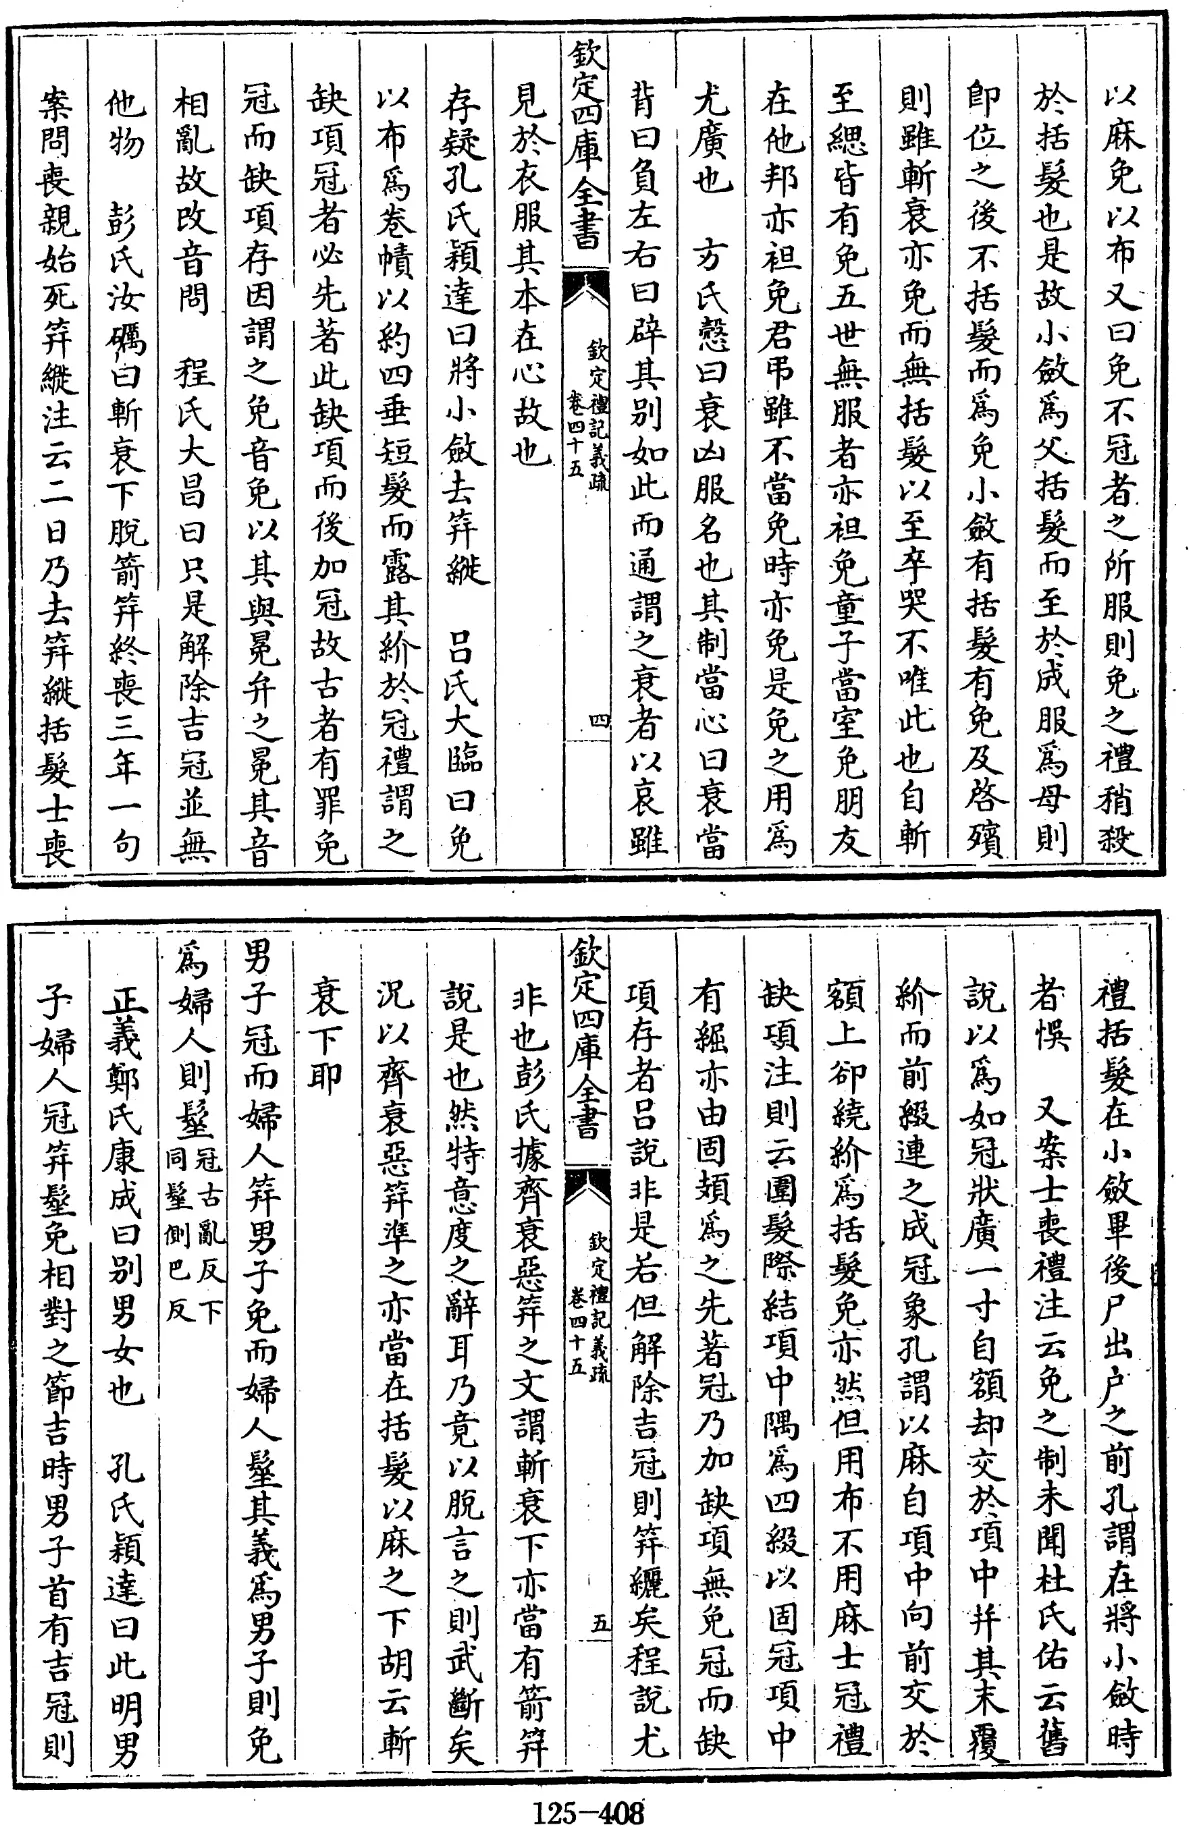 以麻免以布又曰免不冠者之所服則免之禮稍殺
於括髮也是故小斂爲父括髮而至於成服爲母則
即位之後不括髮而爲免小斂有括髮有免及啓殯
則雖斬衰亦免而無括髮以至卒哭不唯此也自斬
至緦皆有免五世無服者亦袒免童子當室免朋友
在他邦亦袒免君弔雖不當免時亦免是免之用爲
尤廣也　方氏慤曰衰凶服名也其制當心曰衰當
背曰負左右曰辟其別如此而通謂之衰者以哀雖
欽定四庫全書　欽定禮記義疏　卷四十五　四
見於衣服其本在心故也
存疑孔氏穎達曰將小斂去筓縰　呂氏大臨曰免
以布爲卷幘以約四垂短髮而露其紒於冠禮謂之
缺項冠者必先著此缺項而後加冠故古者有罪免
冠而缺項存因謂之免音免以其與冕弁之冕其音
相亂故改音問　程氏大昌曰只是解除吉冠並無
他物　彭氏汝礪曰斬衰下脫箭筓終喪三年一句
案問喪親始死筓縰注云二日乃去筓縰括髮士喪
禮括髮在小斂畢後尸出户之前孔謂在將小斂時
者悞　又案士喪禮注云免之制未聞杜氏佑云舊
說以爲如冠狀廣一寸自額却交於項中并其末覆
紒而前綴連之成冠象孔謂以麻自項中向前交於
額上卻繞紒爲括髮免亦然但用布不用麻士冠禮
缺項注則云圍髮際結項中隅爲四綴以固冠項中
有䋄亦由固頍爲之先著冠乃加缺項無免冠而缺
項存者呂說非是若但解除吉冠則筓纚矣程說尤
欽定四庫全書　欽定禮記義疏　卷四十五　五
非也彭氏據齊衰惡筓之文謂斬衰下亦當有箭筓
說是也然特意度之辭耳乃竟以脫言之則武斷矣
況以齊衰惡筓準之亦當在括髮以麻之下胡云斬
衰下耶
男子冠而婦人筓男子免而婦人髽其義爲男子則免
爲婦人則髽冠古亂反下同髽側巴反
正義鄭氏康成曰別男女也　孔氏穎達曰此明男
子婦人冠筓髽免相對之節吉時男子首有吉冠則
125-408